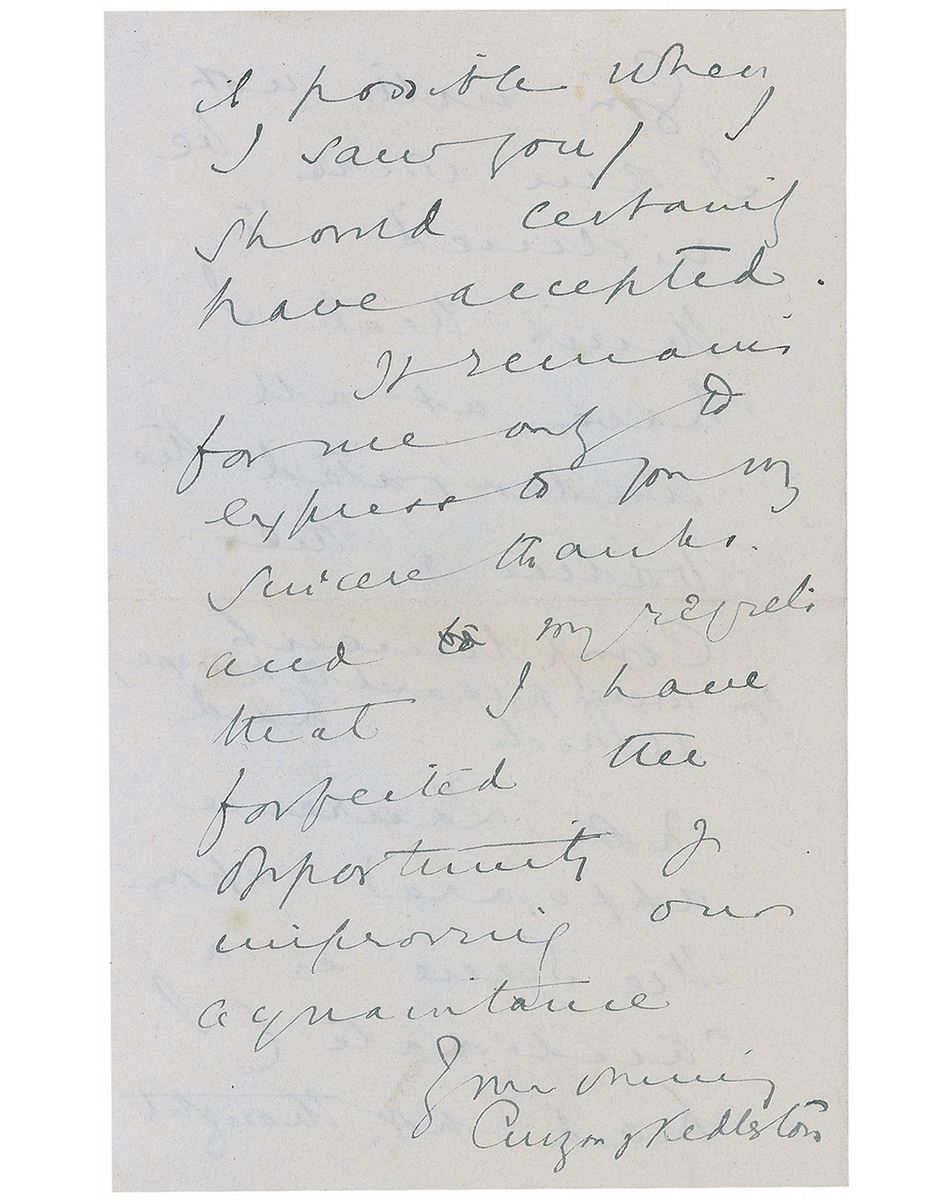 it possible when
I saw you I
should certainly
have accepted.
It remains
for me only to
express to you my
sincere thanks.
and my regrets
that I have
forfeited the
opportunity of
improving our
acquaintance
Yours sincerely
Curzon of Kedleston